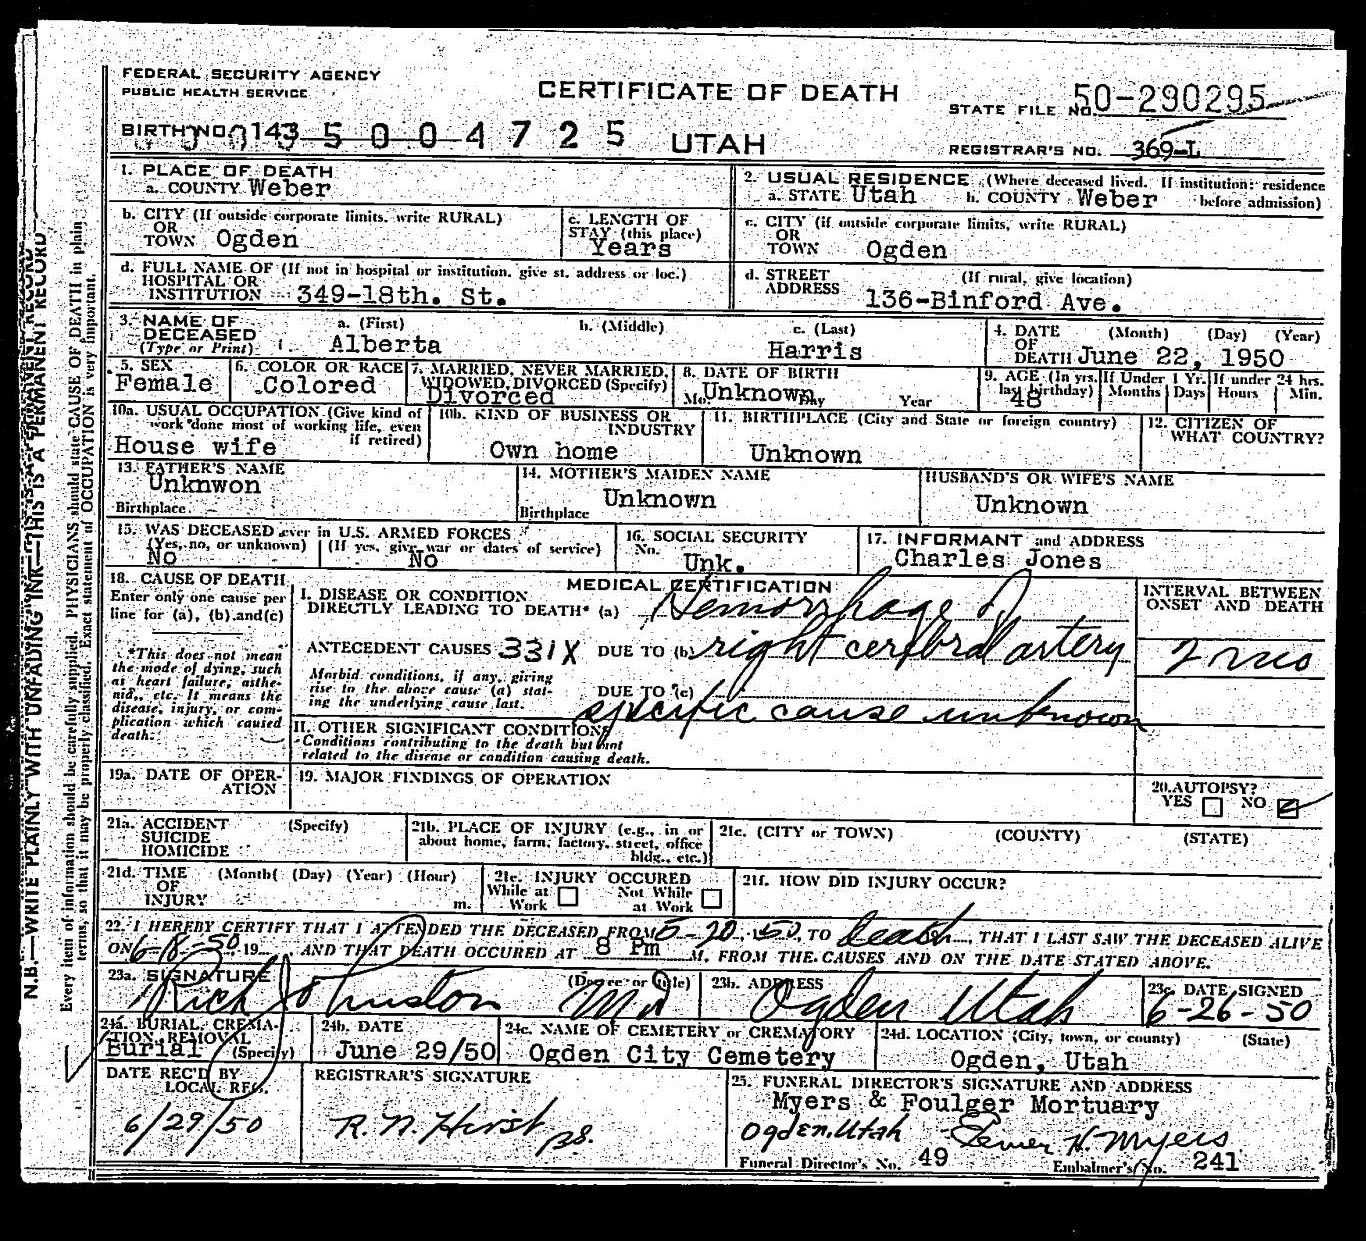 FEDERAL SECURITY AGENCY
PUBLIC HEALTH SERVICE
CERTIFICATE OF DEATH
STATE FILE NO. 50-290295
BIRTH NO. 143 5 0 0 4 7 2 5 UTAH
REGISTRAR'S NO. 369-L
1. PLACE OF DEATH
a. COUNTY Weber
2. USUAL RESIDENCE (Where deceased lived. If institution: residence before admission)
a. STATE Utah b. COUNTY Weber
b. CITY (If outside corporate limits, write RURAL)
OR
TOWN Ogden
c. LENGTH OF
STAY (this place)
Years
c. CITY (if outside corporate limits, write RURAL)
OR
TOWN Ogden
d. FULL NAME OF (If not in hospital or institution, give st. address or loc.)
HOSPITAL OR
INSTITUTION 349-18th. St.
d. STREET (If rural, give location)
ADDRESS 136-Binford Ave.
3. NAME OF
DECEASED
(Type or Print)
a. (First) Alberta
b. (Middle)
c. (Last) Harris
4. DATE (Month) (Day) (Year)
OF
DEATH June 22, 1950
5. SEX
Female
6. COLOR OR RACE
Colored
7. MARRIED, NEVER MARRIED,
WIDOWED, DIVORCED (Specify)
Divorced
8. DATE OF BIRTH
Unknown
Mo. Day Year
9. AGE (In yrs. last birthday) 48
If Under 1 Yr. Months Days
If under 24 hrs. Hours Min.
10a. USUAL OCCUPATION (Give kind of
work done most of working life, even
if retired)
House wife
10b. KIND OF BUSINESS OR
INDUSTRY
Own home
11. BIRTHPLACE (City and State or foreign country)
Unknown
12. CITIZEN OF
WHAT COUNTRY?
13. FATHER'S NAME
Unknwon
Birthplace
14. MOTHER'S MAIDEN NAME
Unknown
Birthplace
HUSBAND'S OR WIFE'S NAME
Unknown
15. WAS DECEASED ever in U.S. ARMED FORCES
(Yes, no, or unknown) (If yes, give war or dates of service)
No No
16. SOCIAL SECURITY
No. Unk.
17. INFORMANT and ADDRESS
Charles Jones
18. CAUSE OF DEATH
Enter only one cause per
line for (a), (b) and (c)
*This does not mean
the mode of dying, such
as heart failure, asthe-
nia, etc. It means the
disease, injury, or com-
plication which caused
death.
MEDICAL CERTIFICATION
I. DISEASE OR CONDITION
DIRECTLY LEADING TO DEATH* (a) Hemorrhage
ANTECEDENT CAUSES 331X DUE TO (b) right cerebral artery
Morbid conditions, if any, giving
rise to the above cause (a) stat-
ing the underlying cause last.
DUE TO (c)
specific cause unknown
II. OTHER SIGNIFICANT CONDITIONS
Conditions contributing to the death but not
related to the disease or condition causing death.
INTERVAL BETWEEN
ONSET AND DEATH
19a. DATE OF OPER-
ATION
19. MAJOR FINDINGS OF OPERATION
20. AUTOPSY?
YES NO
21a. ACCIDENT (Specify)
SUICIDE
HOMICIDE
21b. PLACE OF INJURY (e.g., in or
about home, farm, factory, street, office
bldg., etc.)
21c. (CITY or TOWN) (COUNTY) (STATE)
21d. TIME (Month) (Day) (Year) (Hour)
OF
INJURY m.
21e. INJURY OCCURED
While at Work Not While at Work
21f. HOW DID INJURY OCCUR?
22. I HEREBY CERTIFY THAT I ATTENDED THE DECEASED FROM 5-20, 1950, TO death, THAT I LAST SAW THE DECEASED ALIVE
ON 6-8-50 19 AND THAT DEATH OCCURED AT 8 Pm M. FROM THE CAUSES AND ON THE DATE STATED ABOVE.
23a. SIGNATURE (Degree or title)
Rich Johnston MD
23b. ADDRESS
Ogden Utah
23c. DATE SIGNED
6-26-50
24a. BURIAL, CREMA-
TION, REMOVAL
Burial (Specify)
24b. DATE
June 29/50
24c. NAME OF CEMETERY or CREMATORY
Ogden City Cemetery
24d. LOCATION (City, town, or county) (State)
Ogden, Utah
DATE REC'D BY
LOCAL REG.
6/29/50
REGISTRAR'S SIGNATURE
R. N. Hirst
25. FUNERAL DIRECTOR'S SIGNATURE AND ADDRESS
Myers & Foulger Mortuary
Ogden, Utah H. Myers
Funeral Director's No. 49 Embalmer's No. 241
N.B.—WRITE PLAINLY WITH UNFADING INK—THIS IS A PERMANENT RECORD
Every item of information should be carefully supplied. PHYSICIANS should state CAUSE OF DEATH in plain
terms, so that it may be properly classified. Exact statement of OCCUPATION is very important.